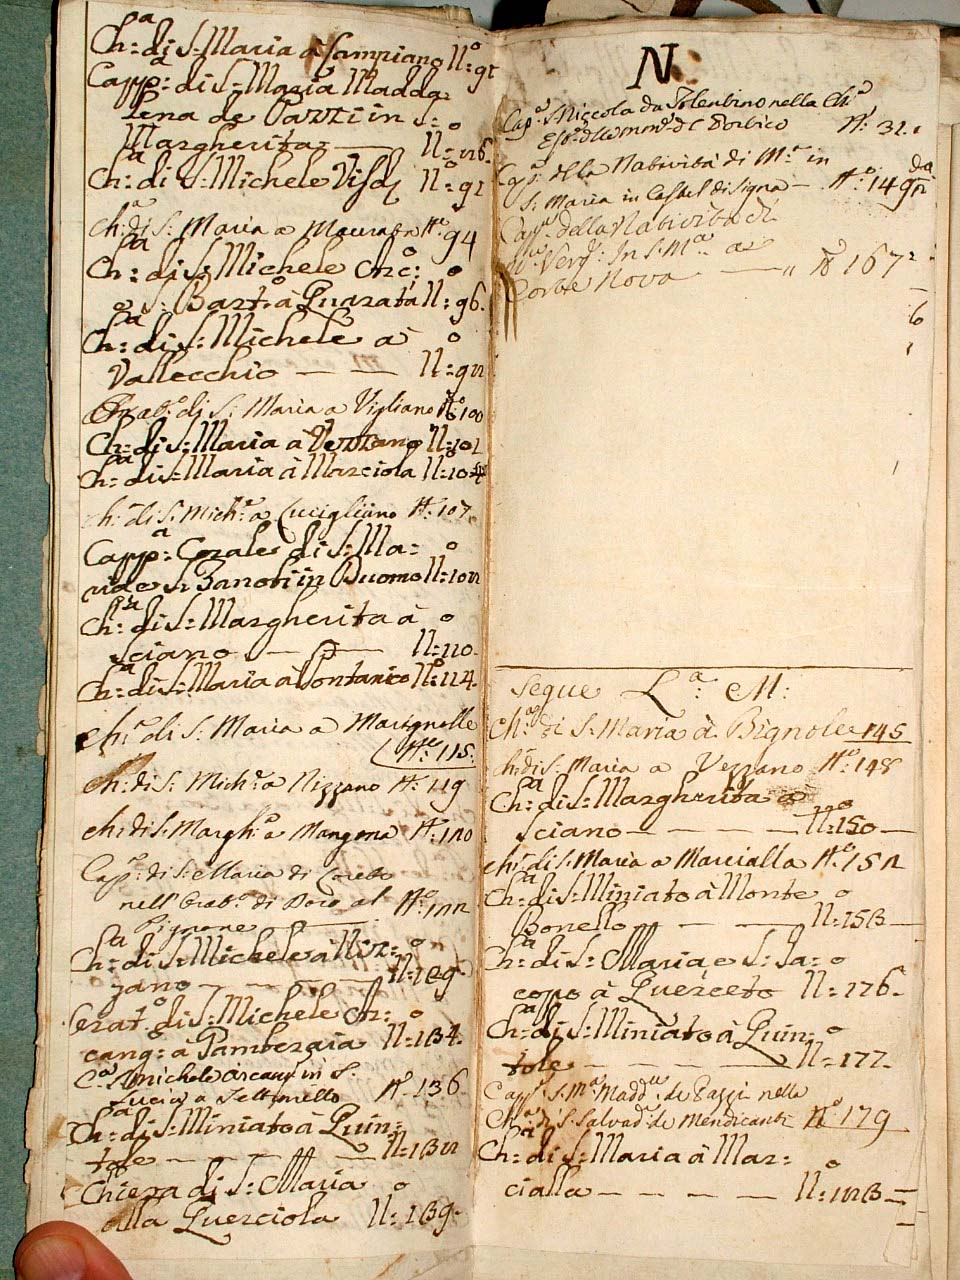 Ch:ᵃ di S: Maria à Sampiano N:º 91
Capp:ᵃ di S: Maria Madda:
lena de Pazzi in S:
Margherita N:º 126.
Ch:ᵃ di S: Michele Visd: N:º 91
Ch:ᵃ di S: Maria a N:º 94
Ch:ᵃ di S: Michele Arc:
e S: Bart:º à Quarata N:º 96.
Ch:ᵃ di S: Michele à
Vallecchio — — N:º 92
Orat:º di S: Maria a Vigliano N:º 100
Ch:ᵃ di S: Maria a Vezzano N:º 101
Ch:ᵃ di S: Maria à Marciola N:º 104
Ch:ᵃ di S: Mich:ᵉ a Cuccigliano N:º 107.
Capp:ᵃ Corale di S: Ma:
ria e S: Zanobi in Duomo N:º 102
Ch:ᵃ di S: Margherita à
Sciano — — N:º 110.
Ch:ᵃ di S: Maria à Pontanico N:º 114.
Ch:ᵃ di S: Maria a Martignelle
N:º 115.
Ch:ᵃ di S: Mich:ᵉ a Nizzano N:º 119
Ch:ᵃ di S: Margh:ᵃ a Mangona N:º 120
Capp:ᵃ di S: Maria di Loreto
nell' Orat:º di al N:º 122
Pignone
Ch:ᵃ di S: Michele à Niz:
zano — — N:º 129.
Orat:º di S: Michele Ar:
cang:º à Pamberaia N:º 134.
Cª S: Michele Arcang in S.
Lucia a Settimello Nº 136
Ch:ᵃ di S: Miniato à Quin:
tole — — — N:º 132
Chiesa di S: Maria
alla Querciola N:º 139.
N.
Cap:ᵃ S. Niccola da Tolentino nella Ch:ᵃ
N:º 31.
Cap:ᵃ della Natività di M:ᵃ in
S. Maria in Castel di Signa — N:º 149
Cap:ᵃ della Natività di
M:ᵃ Verg:ᵉ In S. M:ᵃ a
Corte Nova — Nº 167
Segue L:ᵃ M:
Ch:ᵃ di S: Maria à Bignole 145
Ch:ᵃ di S: Maria a Vezzano N:º 148
Ch:ᵃ di S: Margherita a
Sciano — — — — N:º 150
Ch:ᵃ di S: Maria a Marcialla N:º 152
Ch:ᵃ di S: Miniato à Monte
Bonello — — — N:º 153
Ch:ᵃ di S: Maria e S: Ja:
copo à Querceto N:º 176.
Ch:ᵃ di S: Miniato à Quin:
tole N:º 177.
Capp:ᵃ S. Mª Madd: de Pazzi nella
Ch:ᵃ di S. Salvad: de Mendicanti Nº 179
Ch:ᵃ di S: Maria à Mar:
cialla — — — — N:º 123